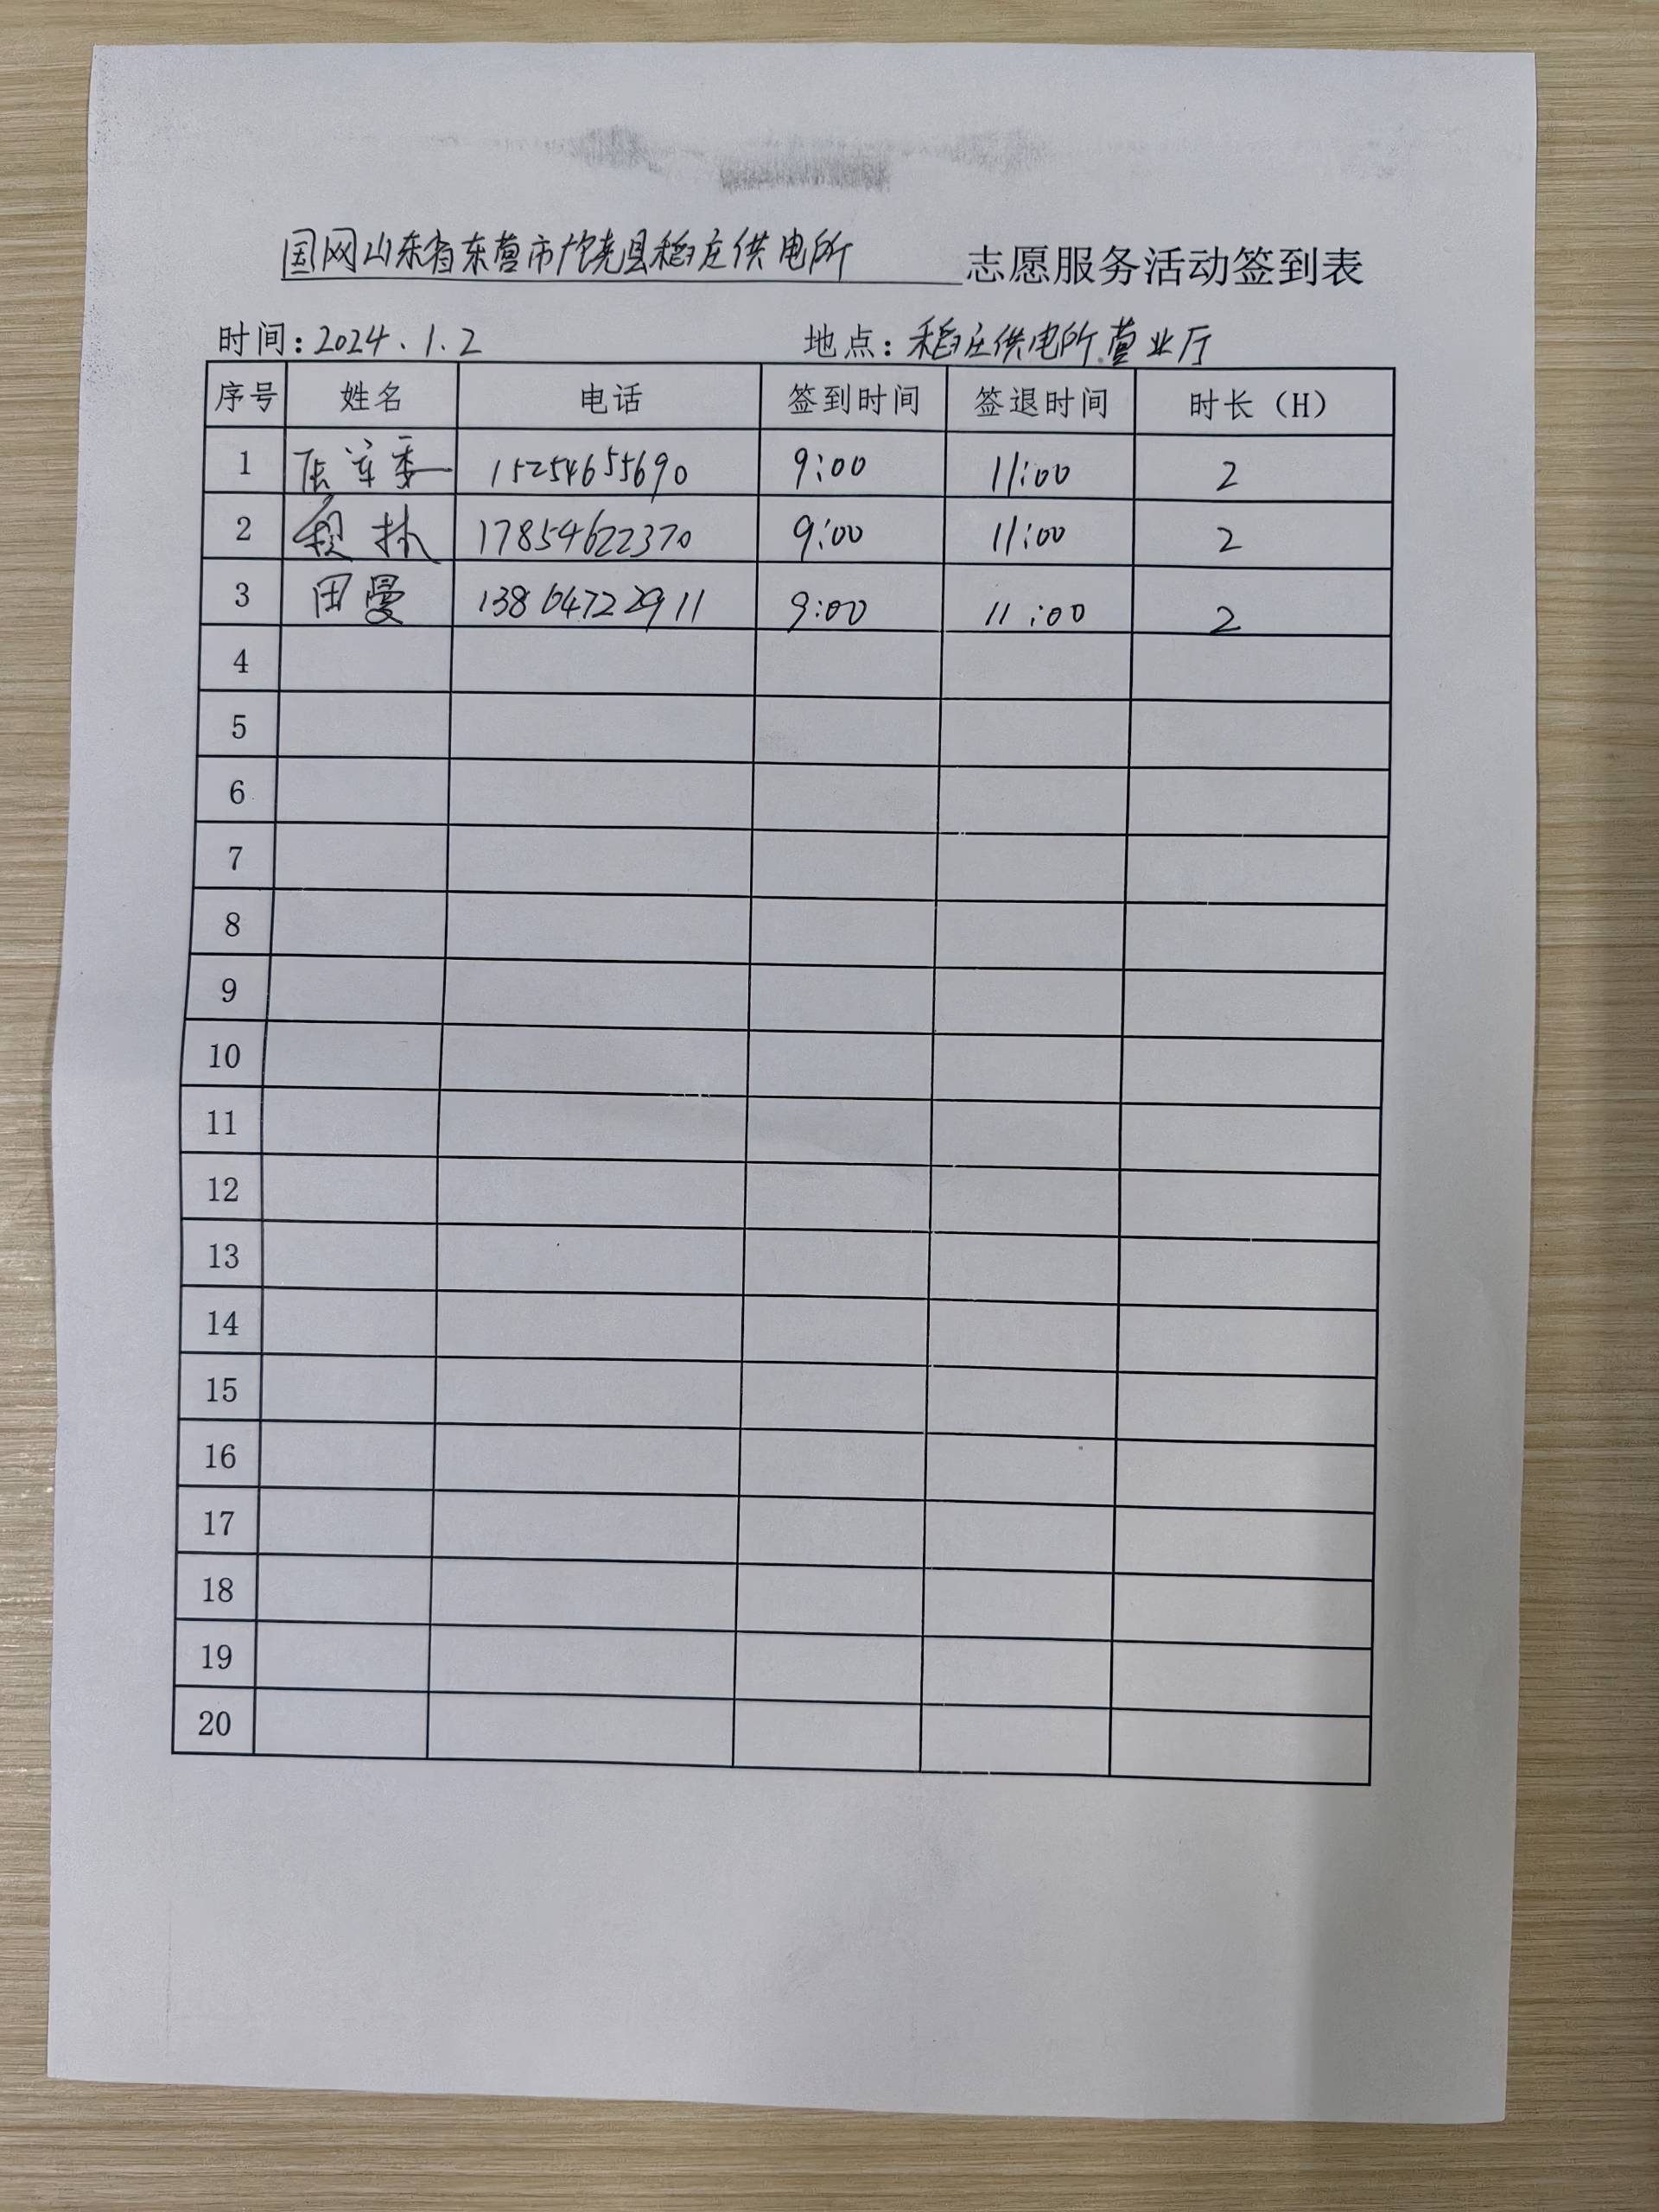 国网山东省东营市广饶县稻庄供电所 志愿服务活动签到表
时间：2024.1.2 地点：稻庄供电所营业厅
序号 姓名 电话 签到时间 签退时间 时长（H）
1 15254655690 9:00 11:00 2
2 17854622370 9:00 11:00 2
3 田曼 13864722911 9:00 11:00 2
4
5
6
7
8
9
10
11
12
13
14
15
16
17
18
19
20